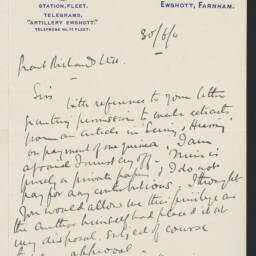 STATION, FLEET.
EWSHOTT, FARNHAM.
TELEGRAMS,
"ARTILLERY EWSHOTT."
TELEPHONE No. 71 FLEET.
30/6/11
Grant Richards Ltd.
Sirs
With reference to your letter
granting permission to make extracts
from an article in
on payment of one guinea, I am
afraid I must cry off. Mine is
purely a private paper, & I do not
pay for any contributions. I thought
you would allow me the privilege as
the author himself had placed it at
my disposal, subject of course
to approval